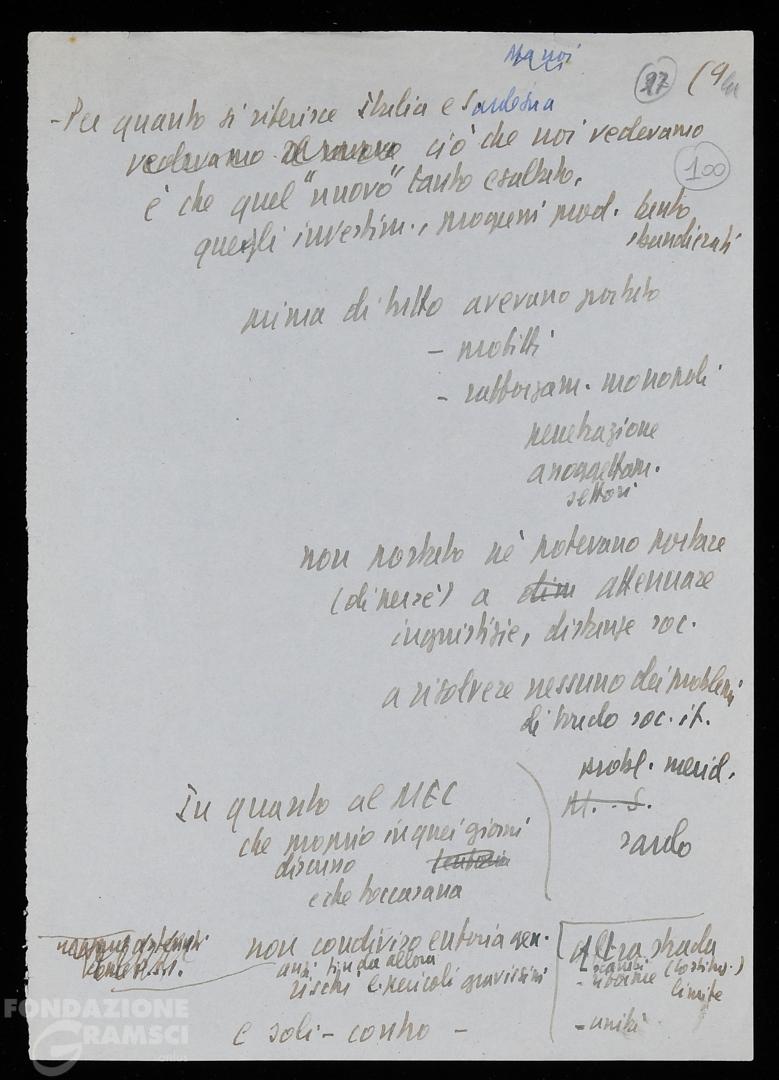 Ma noi
27 (9
- Per quanto si riferisce Italia e Sardegna
vedevamo ciò che noi vedevamo
100
è che quel "nuovo" tanto esaltato,
quegli investim., progressi prod. tanto
sbandierati
prima di tutto avevano portato
- profitti
- rafforzam. monopoli
penetrazione
assoggettam.
settori
non portato né potevano portare
(di per sé) a dim attenuare
ingiustizie, distanze soc.
a risolvere nessuno dei problemi
di fondo soc. it.
probl. merid.
M. - S.
sardo
In quanto al MEC
che proprio in quei giorni
discusso
e che toccasana
non condiviso euforia gen.
anzi, fin da allora
rischi e pericoli gravissimi
e soli - contro -
Altra strada
- riforme (costituz.)
limite
- unità
FONDAZIONE
GRAMSCI
onlus